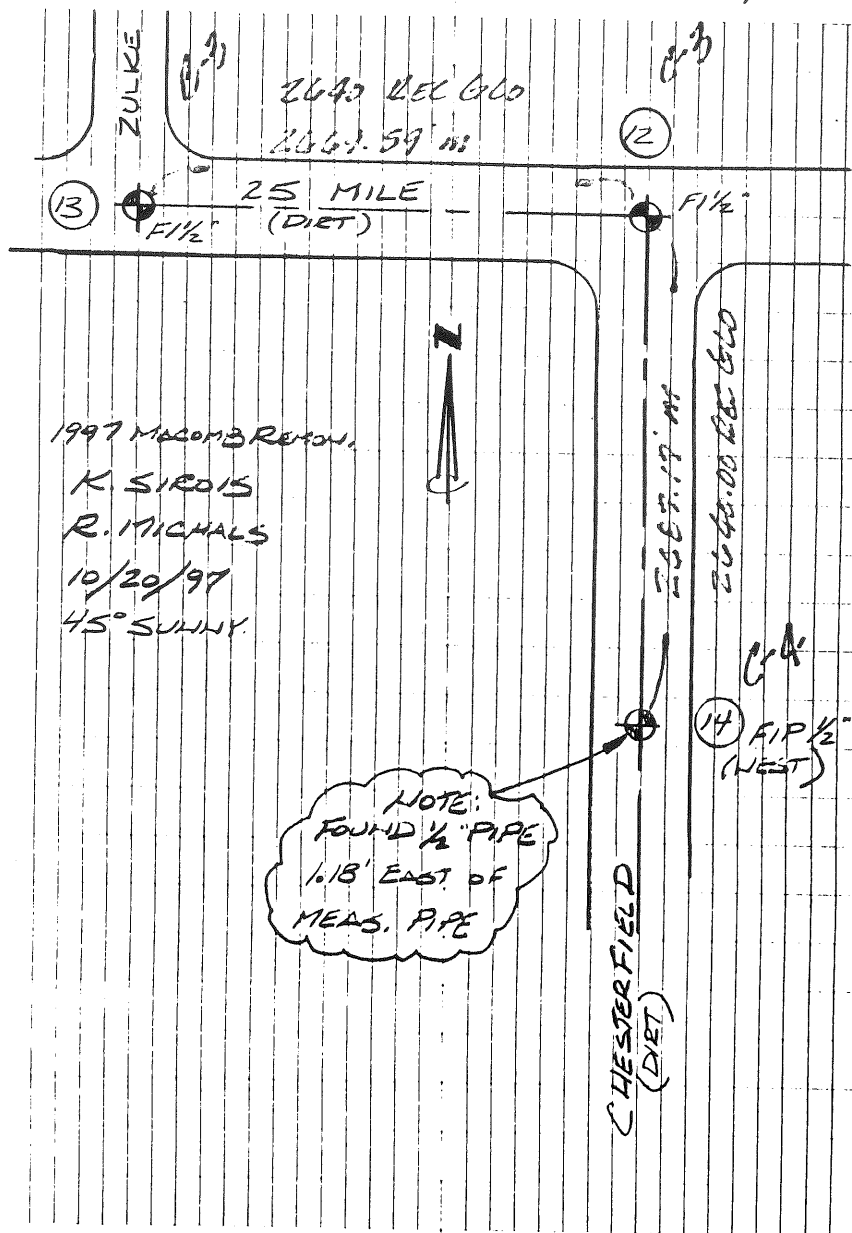 ZULKE
2640 REC GLO
12
13
25 MILE
(DIRT)
FI ½"
FI ½"
1997 MACOMB REMON.
K. SIROIS
R. MICHALS
10/20/97
45° SUNNY
2640.00 REC GLO
14
FIP ½"
(WEST)
NOTE:
FOUND ½" PIPE
1.18' EAST OF
MEAS. PIPE
CHESTERFIELD
(DIRT)